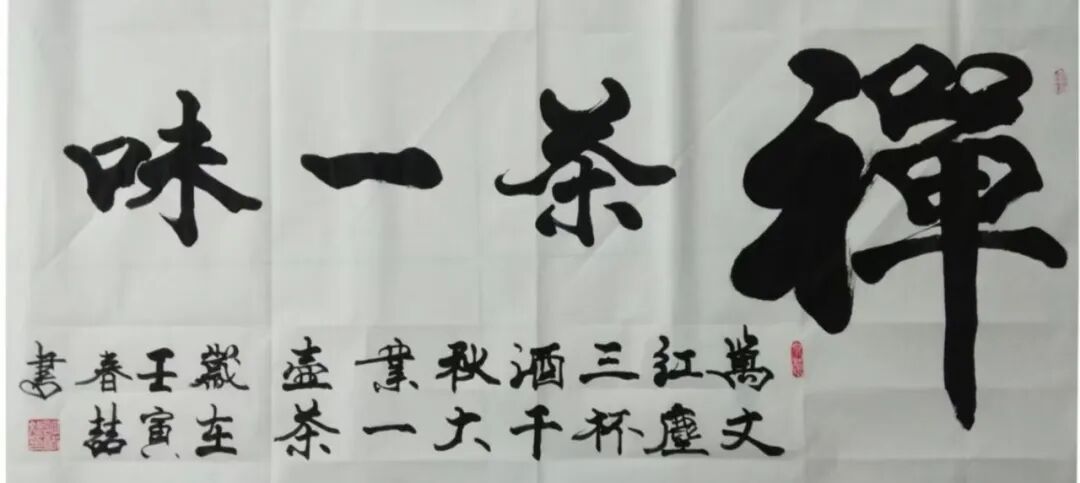 禪茶一味
萬丈
红塵
三杯
酒千
秋大
業一
壶茶
歲在
壬寅
春喆
書